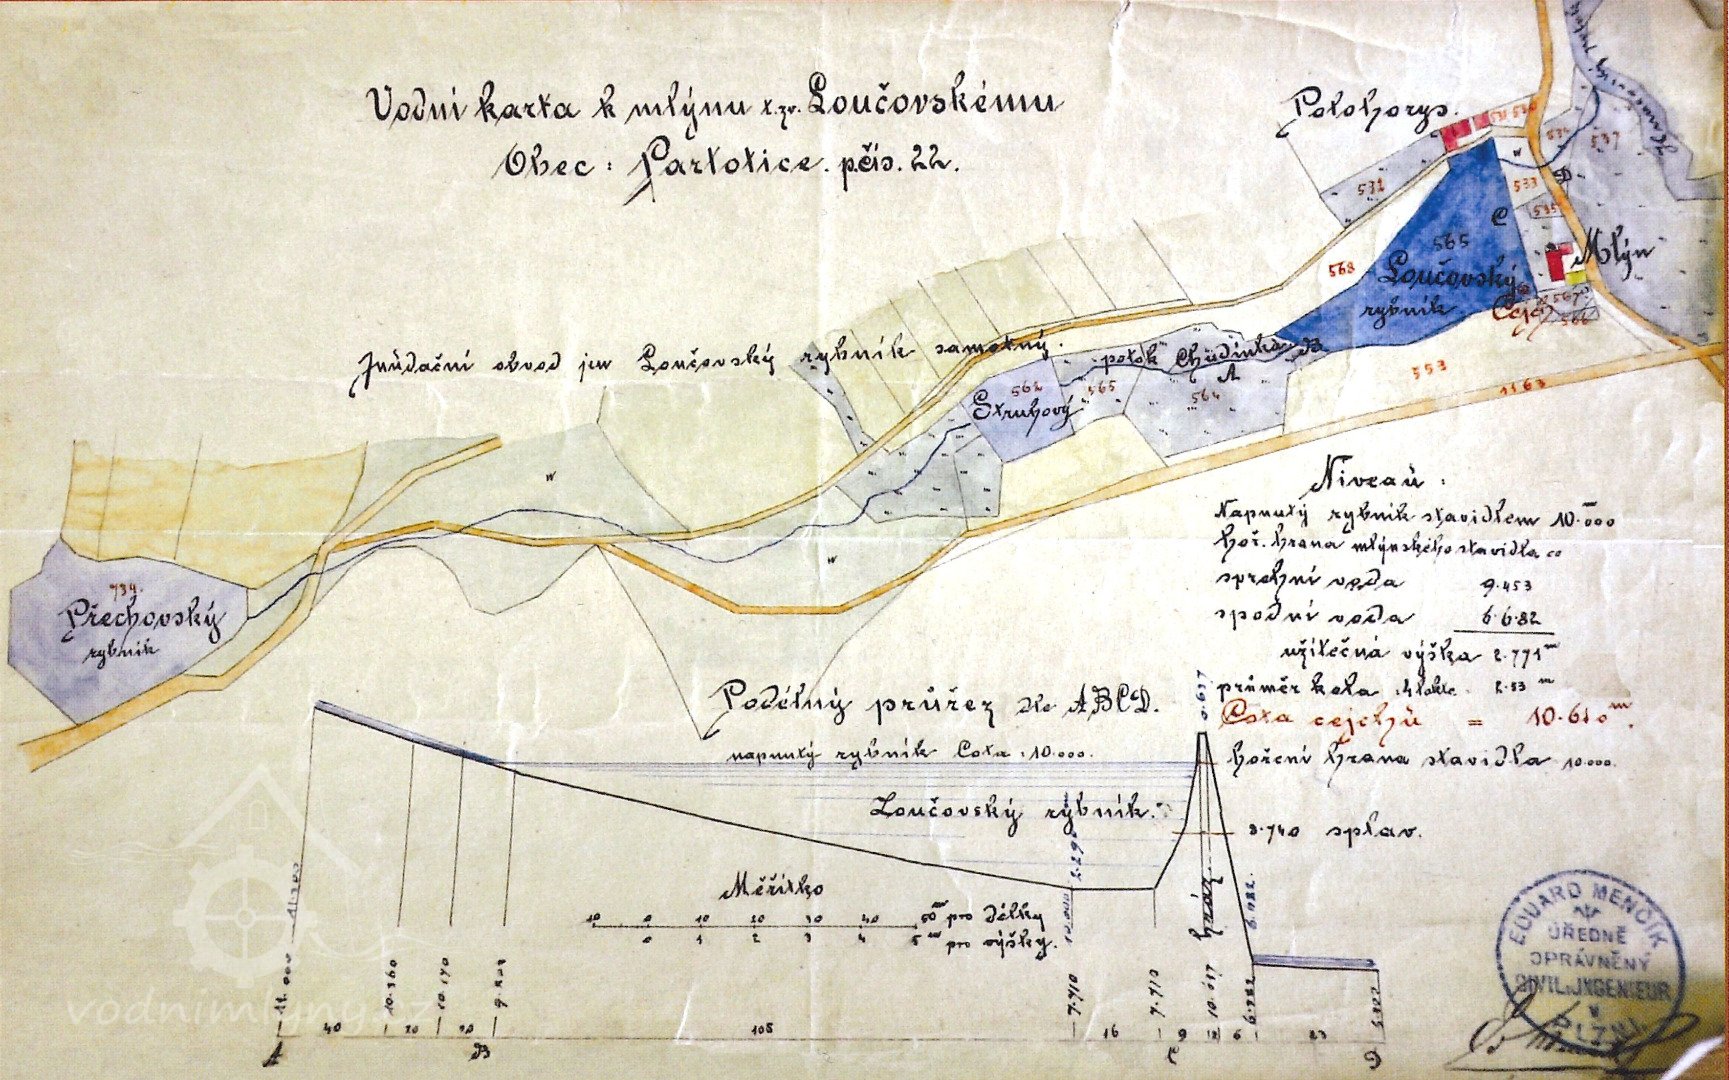 Vodní karta k mlýnu t.zv. Loučovskému
Obec: Partotice. p.čís. 22.
Potohorys.
532
537
533
535
Mlýn
C
D
565
568
Loučovský
rybník
Cejch
567
566
553
1163
Inúdační obvod jen Loučovský rybník samotný.
potok Chudinka
B
A
562
565
564
Struhový
W
W
734.
Přechovský
rybník
Niveaú:
Napnutý rybník stavidlem 10.000
hoř. hrana mlýnského stavidla
sprchní voda 9.453
spodní voda 6.682
užitečná výška 2.771 m
průměr kola
Cota cejchů = 10.610 m.
Podélný průřez dle ABCD.
napnutý rybník Cota 10.000.
hoření hrana stavidla 10.000.
Loučovský rybník.
splav.
Měřítko
10 0 10 20 30 40 50 m pro délky
0 1 2 3 4 5 m pro výšky.
hráz
11.000
10.360
10.170
7.710
7.710
10.637
6.982
6.982
40 20 20 108 16 9 6 23
A B C D
EDUARD MENČÍK
ÚŘEDNĚ
OPRÁVNĚNÝ
CIVIL.INGENIEUR
V
PLZNI
vodnimlyny.cz